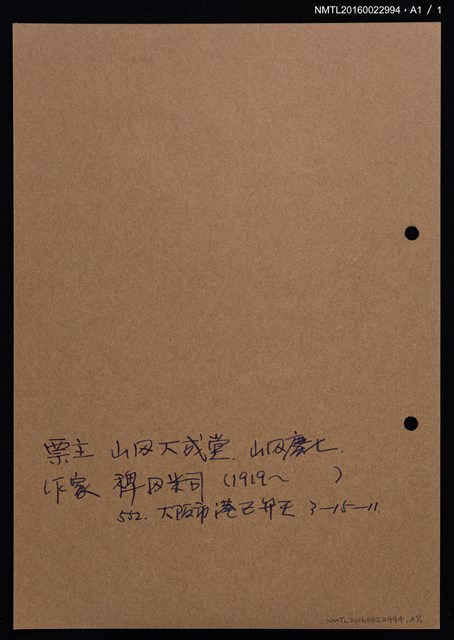 NMTL20160022994・A1 / 1
票主 山田大成堂. 山田慶七.
作家 稗田米司 (1919~ )
552. 大阪市港区弁天 3-15-11
NMTL20160022994.A1/1